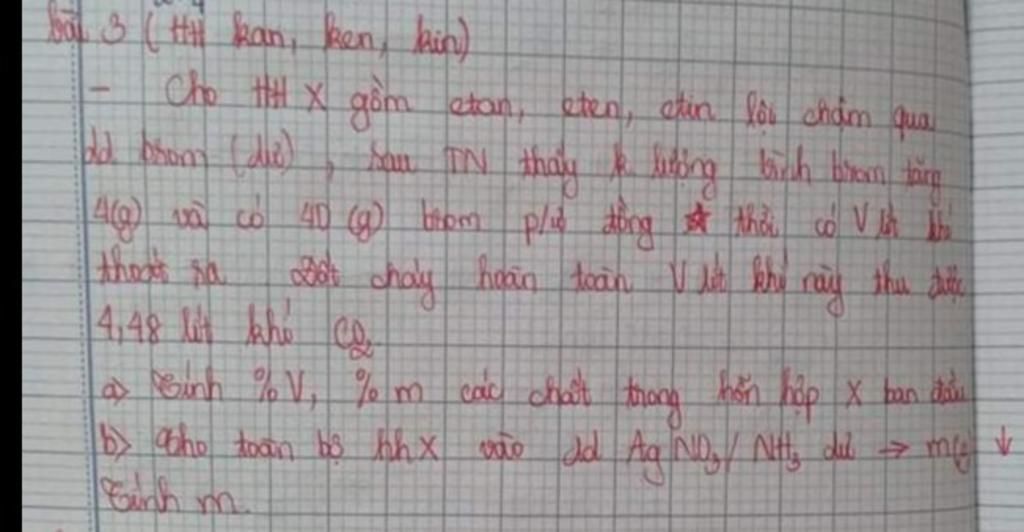 bài 3 (HH kan, ken, kin)
- Cho HH X gồm etan, eten, etin lội chậm qua
dd brom (dư), sau TN thấy k lượng bình brom tăng
4(g) và có 40 (g) brom p/ứ đồng thời có V lít khí
thoát ra đốt cháy hoàn toàn V lít khí này thu được
4,48 lít khí CO2
a> Tính %V, %m các chất trong hỗn hợp X ban đầu
b> Cho toàn bộ hh X vào dd AgNO3/NH3 dư → m(g) ↓
Tính m.